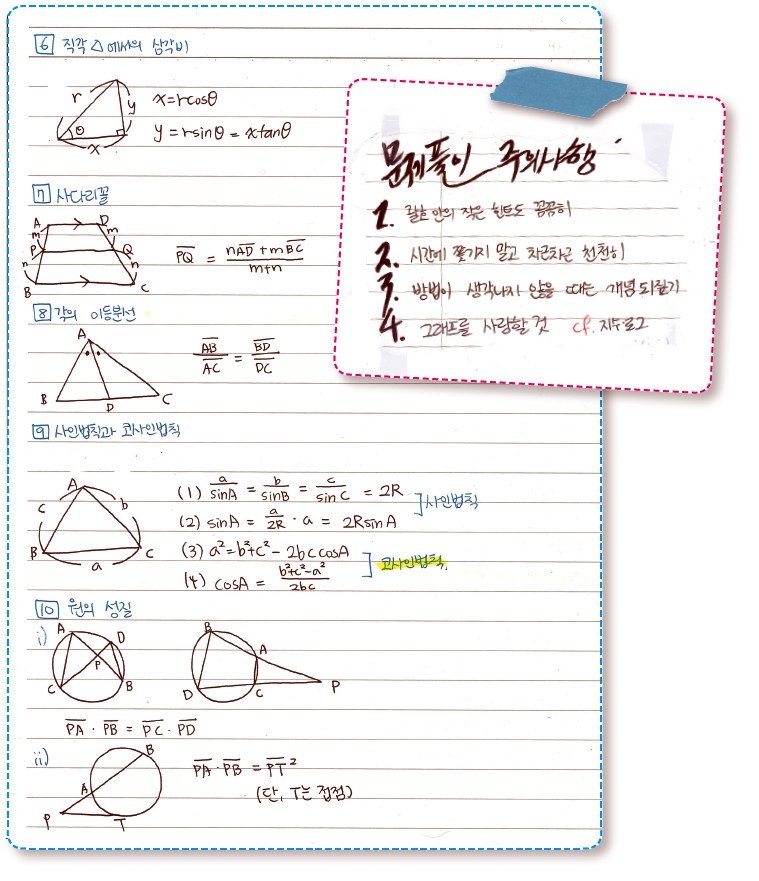 6 직각△에서의 삼각비
r
y
θ
x
x=rcosθ
y=rsinθ=xtanθ
7 사다리꼴
A D
m m
P Q
n n
B C
PQ = (nAD+mBC)/(m+n)
8 각의 이등분선
A
B D C
AB/AC = BD/DC
9 사인법칙과 코사인법칙
A
c b
B C
a
(1) a/sinA = b/sinB = c/sinC = 2R
(2) sinA = a/2R · a = 2RsinA
사인법칙
(3) a²=b²+c²-2bccosA
(4) cosA = (b²+c²-a²)/2bc
코사인법칙
10 원의 성질
i)
A D
P
C B
B
A
D C P
PA · PB = PC · PD
ii)
B
A
P T
PA · PB = PT²
(단, T는 접점)
문제풀이 주의사항
1. 괄호 안의 작은 힌트도 꼼꼼히
2. 시간에 쫓기지 말고 차근차근 천천히
3. 방법이 생각나지 않을 때는 개념 되짚기
4. 그래프를 사랑할 것 cf. 지수로그